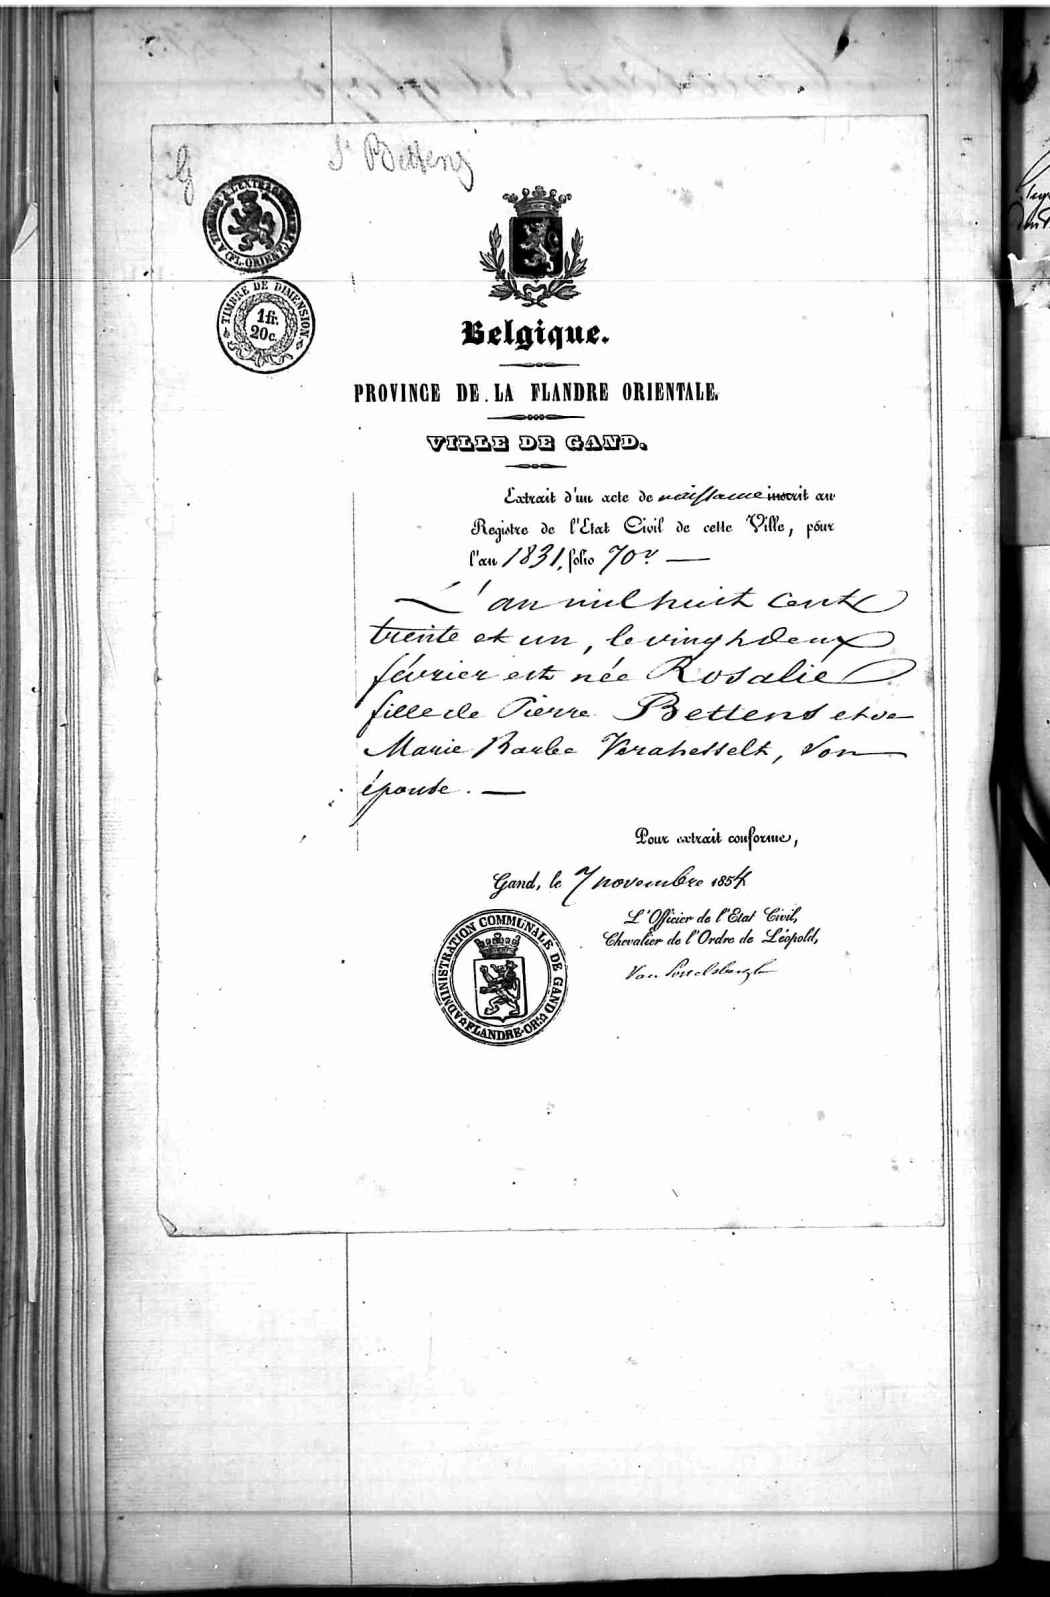 G
Bettens
TIMBRE DE DIMENSION
1 fr.
20 c.
Belgique.
PROVINCE DE LA FLANDRE ORIENTALE.
VILLE DE GAND.
Extrait d'un acte de naissance inscrit au
Registre de l'Etat Civil de cette Ville, pour
l'an 1831, folio 70v —
L'an mil huit cent
trente et un, le vingt deux
février est née Rosalie
fille de Pierre Bettens et de
Marie Barbe Verahesselt, son
épouse. —
Pour extrait conforme,
Gand, le 7 novembre 1854
L'Officier de l'Etat Civil,
Chevalier de l'Ordre de Léopold,
Van
ADMINISTRATION COMMUNALE DE GAND
FLANDRE-OR.